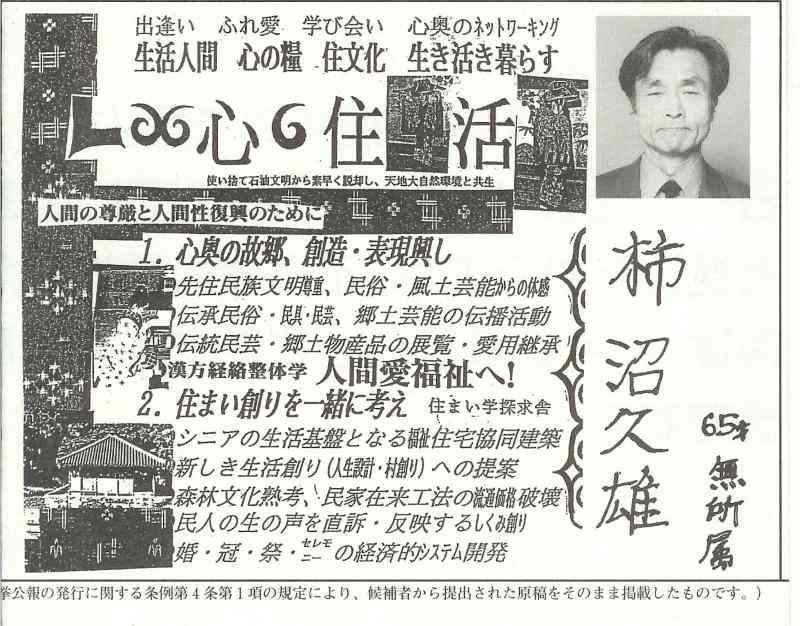 出逢い　ふれ愛　学び会い　心奥のネットワーキング
生活人間　心の糧　住文化　生き活き暮らす
心　住　活
使い捨て石油文明から素早く脱却し、天地大自然環境と共生
人間の尊厳と人間性復興のために
1. 心奥の故郷、創造・表現興し
先住民族文明尊重、民俗・風土芸能からの体感
伝承民俗・民具・民芸、郷土芸能の伝播活動
伝統民芸・郷土物産品の展覧・愛用継承
漢方経絡整体学　人間愛福祉へ!
2. 住まい創りを一緒に考え　住まい学探求舎
シニアの生活基盤となる福祉住宅協同建築
新しき生活創り(人生設計・村創り)への提案
森林文化熟考、民家在来工法の流通価格破壊
民人の生の声を直訴・反映するしくみ創り
婚・冠・祭・セレモニーの経済的システム開発
柿沼久雄
65才　無所属
挙公報の発行に関する条例第4条第1項の規定により、候補者から提出された原稿をそのまま掲載したものです。)